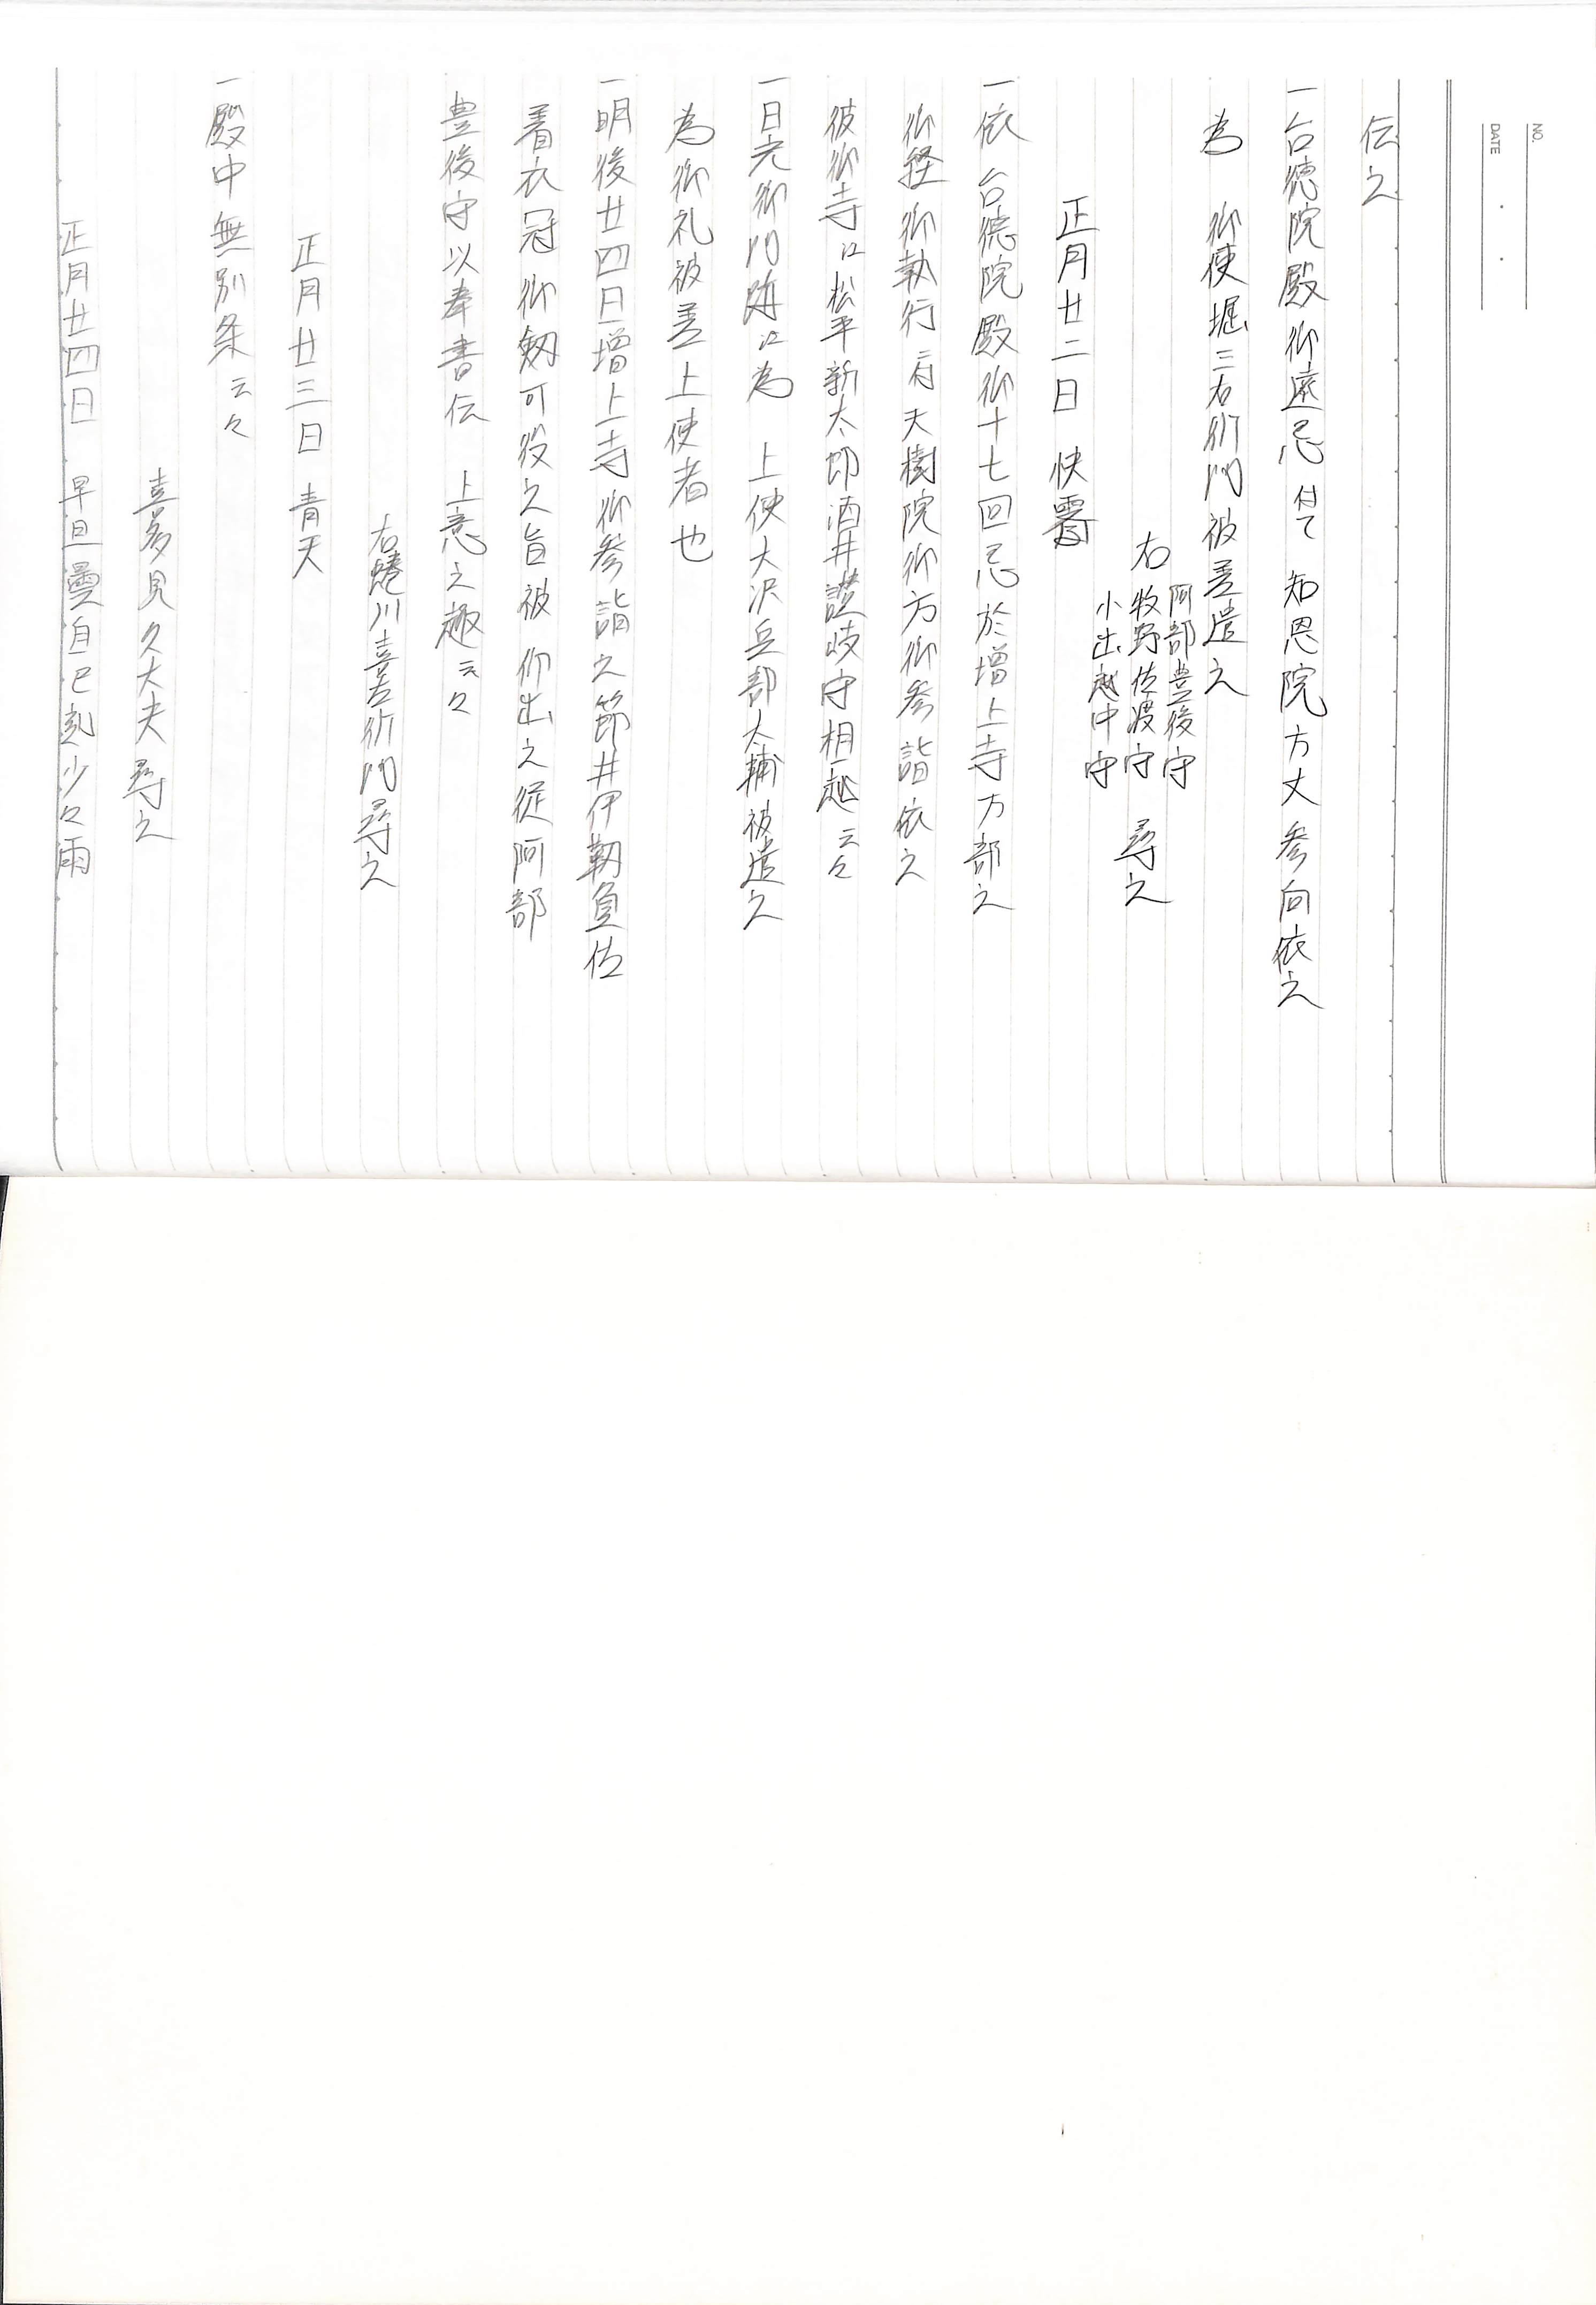 NO.
DATE
伝之
一台徳院殿御遠忌付て 知恩院方丈参向依之
為 御使堀三右衛門被差遣之
阿部豊後守
右 牧野佐渡守 尋之
小出越中守
正月廿二日 快霽
一依 台徳院殿御十七回忌於増上寺万部之
御経御執行二付天樹院御方御参詣依之
彼御寺江松平新太郎酒井讃岐守相越云々
一日光御門跡江為 上使大沢兵部大輔被遣之
為御礼被差上使者也
一明後廿四日増上寺御参詣之節井伊靱負佐
着衣冠御剱可役之旨被 仰出之従阿部
豊後守以奉書伝 上意之趣云々
右蜷川喜左衛門尋之
正月廿三日 青天
一殿中無別条云々
喜多見久大夫尋之
正月廿四日 早旦曇自巳刻少々雨